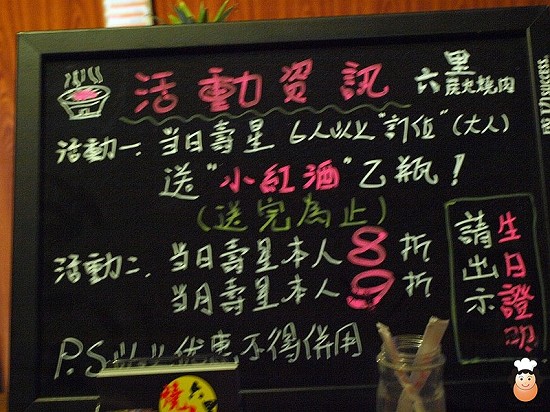 活動資訊
六里
炭火燒肉
活動一. 當日壽星 6人以上"訂位"(大人)
送"小紅酒"乙瓶!
(送完為止)
活動二. 當日壽星本人 8 折
當月壽星本人 9 折
請出示
生日證明
P.S 以上優惠不得併用